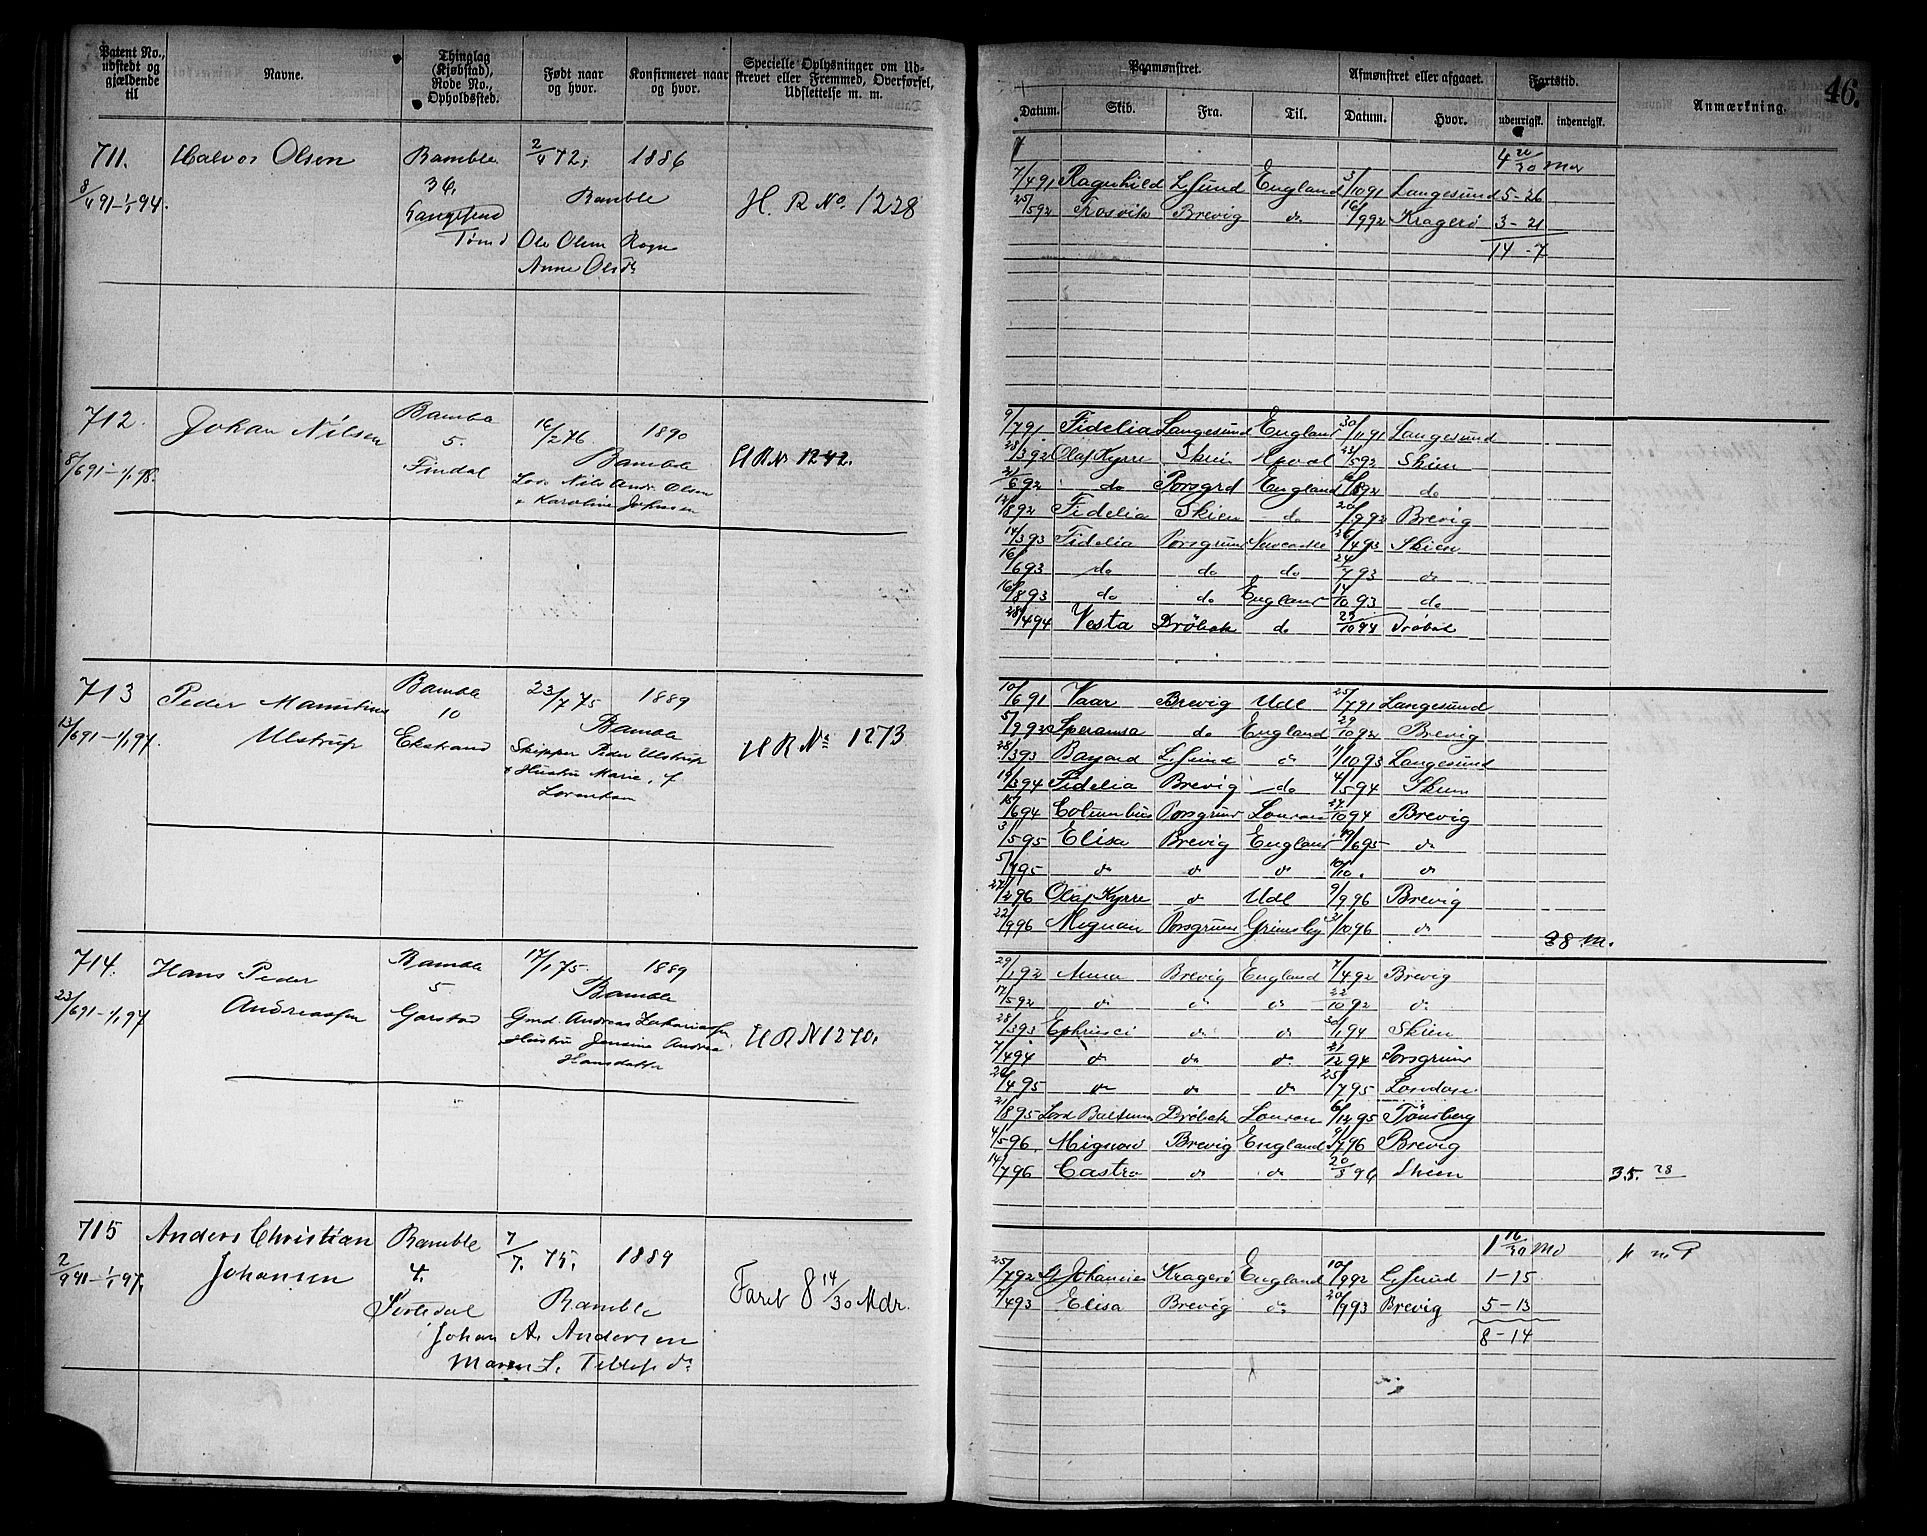 Patent No., udstedt og gjældende til
Navne.
Thinglag (Kjøbstad), Rode No., Opholdssted.
Født naar og hvor.
Konfirmeret naar og hvor.
Specielle Oplysninger om Udskrevet eller Fremmed, Overførsel, Udslettelse m. m.
Paamønstret.
Afmønstret eller afgaaet.
Fartstid.
Anmærkning.
46.
Datum.
Skib.
Fra.
Til.
Datum.
Hvor.
udenrigsk.
indenrigsk.
711.
Halvor Olsen
Bamble
2/4 72,
1886
8/4 91-1/1 94.
36.
Bamble
H. R No. 1228
Langesund
Tømd
Ole Olsen Rogn
Anne Olsdr
7/4 91 Ragnhild L.sund England 3/10 91 Langesund 5-26
25/5 92 Frosvik Brevig do 16/9 92 Kragerø 3-21
14-7
712.
Johan Nilsen
Bamble
16/2 76
1890
8/6 91-1/1 98.
5.
Bamble
H R No 1242.
Findal
Los Nils Andr. Olsen
+ Karoline Johnsen
9/7 91 Fidelia Langesund England 30/11 91 Langesund
28/3 92 Olaf Kyrre Skien 23/5 92 Skien
21/6 92 do Porsgrd England 8 92 do
12/8 92 Fidelia Skien do 20/9 92 Brevig
14/3 93 Fidelia Porsgrund Newcastle 26/4 93 Skien
16/6 93 do do do 24/7 93 do
16/8 93 do do England 14/10 93 do
28/4 94 Vesta Drøbak do 29/10 94 Drøbak
713
Peder
Bamble
23/7 75
1889
13/6 91-1/1 97.
Ulstrup
10
Bamble
H R No 1273
Ekstrand
Skipper Peder Ulstrup
+ Hustru Marie, f.
Lorentsen
10/6 91 Vaar Brevig Udl 25/7 91 Langesund
5/9 92 Speransa do England 29/10 92 Brevig
28/3 93 Bayard L.sund do /10 93 Langesund
19/3 94 Fidelia Brevig do 4/5 94 Skien
15/6 94 Columbus Porsgrund London 27/10 94 Brevig
3/5 95 Elisa Brevig England 19/6 95 do
5/7 95 do do do 10/10 . do
27/2 96 Olaf Kyrre do Udl 9/9 96 Brevig
22/9 96 Mignon Porsgrund Grimsby 31/10 96 do
38 M.
714.
Hans Peder
Bamble
17/1 75
1889
23/6 91-1/1 97
Andreassen
5
Bamble
H R N 1270.
Garstad
Gmd. Andreas Zakariassen
Hustru Jensine Andrea
Hansdatter
29/1 92 Anna Brevig England 7/4 92 Brevig
17/5 92 do do do 22/10 92 do
28/3 93 do do 30/1 94 Skien
7/4 94 do do do 21/12 94 Porsgrund
26/4 95 do do do 25/7 95 London
21/8 95 Lord Drøbak London 6/12 95 Tønsberg
4/5 96 Mignon Brevig England 9/7 96 Brevig
14/7 96 Castro do do 20/8 96 Skien
35. 28
715
Anders Christian
Bamble
7/7. 75,
1889
2/9 91-1/1 97,
Johansen
4.
Bamble
Faret 8 14/30 Mdr.
Johan A. Andersen
Maren
1 16/30 Md
25/7 92 St Johannes Kragerø England 10/9 92 L.sund 1-15
7/4 93 Elisa Brevig do 20/9 93 Brevig 5-13
8-14